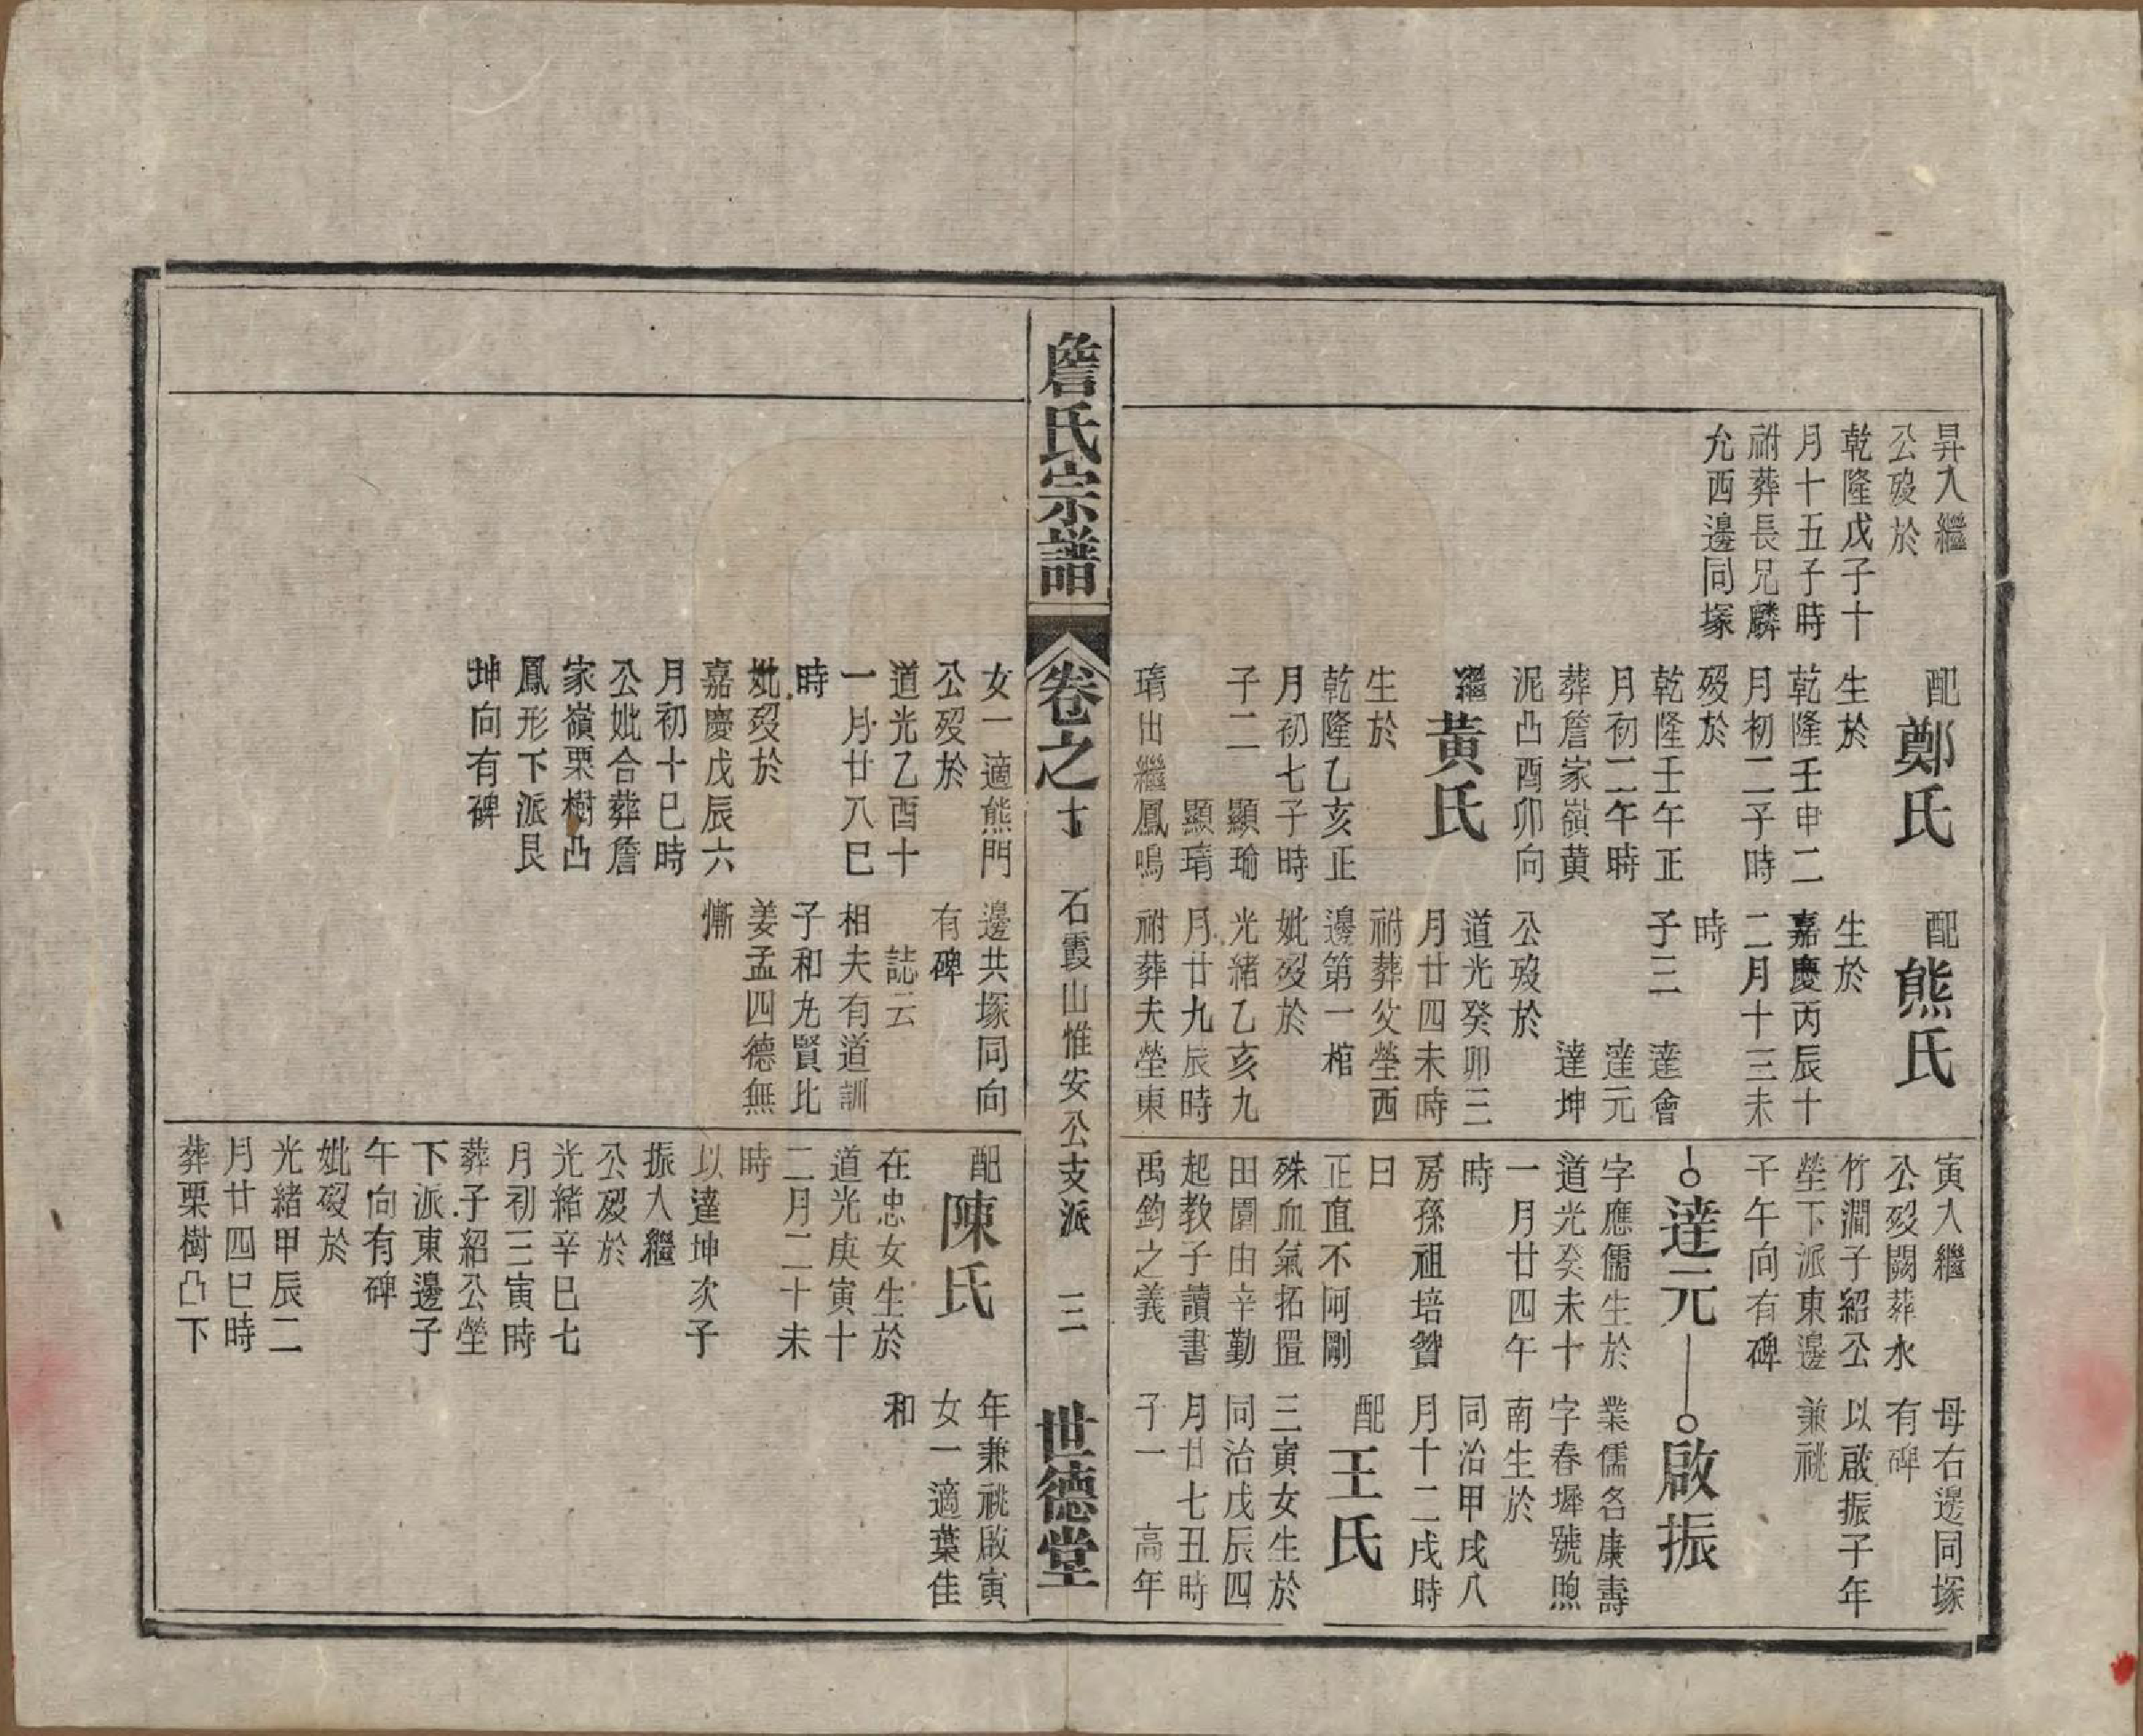 昇入繼
公歿於
乾隆戊子十
月十五子時
祔葬長兄麟
允西邊同塚
配
鄭氏
生於
乾隆壬申二
月初二子時
歿於
乾隆壬午正
月初二午時
葬詹家嶺黄
泥凸酉卯向
繼
黄氏
生於
乾隆乙亥正
月初七子時
子二 顯瑜
顯琦
琦出繼鳳鳴
配
熊氏
生於
嘉慶丙辰十
二月十三未
時
子三 達會
達元
達坤
公歿於
道光癸卯三
月廿四未時
祔葬父塋西
邊第一棺
妣歿於
光緒乙亥九
月廿九辰時
祔葬夫塋東
寅入繼
公歿闕葬水
竹澗子紹公
塋下派東邊
子午向有碑
達元
字應儒生於
道光癸未十
一月廿四午
時
房孫祖培贊
曰
正直不阿剛
殊血氣拓置
田園由辛勤
起教子讀書
禹鈞之義
母右邊同塚
有碑
以啟振子年
兼祧
啟振
業儒名康壽
字春墀號煦
南生於
同治甲戌八
月十二戌時
配
王氏
三寅女生於
同治戊辰四
月廿七丑時
子一 高年
詹氏宗譜
卷之十
石霞山惟安公支派
三
世德堂
女一適熊門
公歿於
道光乙酉十
一月廿八巳
時
妣歿於
嘉慶戊辰六
月初十巳時
公妣合葬詹
家嶺栗樹凸
鳳形下派艮
坤向有碑
邊共塚同向
有碑
誌云
相夫有道訓
子和九賢比
姜孟四德無
慚
配
陳氏
在忠女生於
道光庚寅十
二月二十未
時
以達坤次子
振入繼
公歿於
光緒辛巳七
月初三寅時
葬子紹公塋
下派東邊子
午向有碑
妣歿於
光緒甲辰二
月廿四巳時
葬栗樹凸下
年兼祧啟寅
女一適葉佳
和